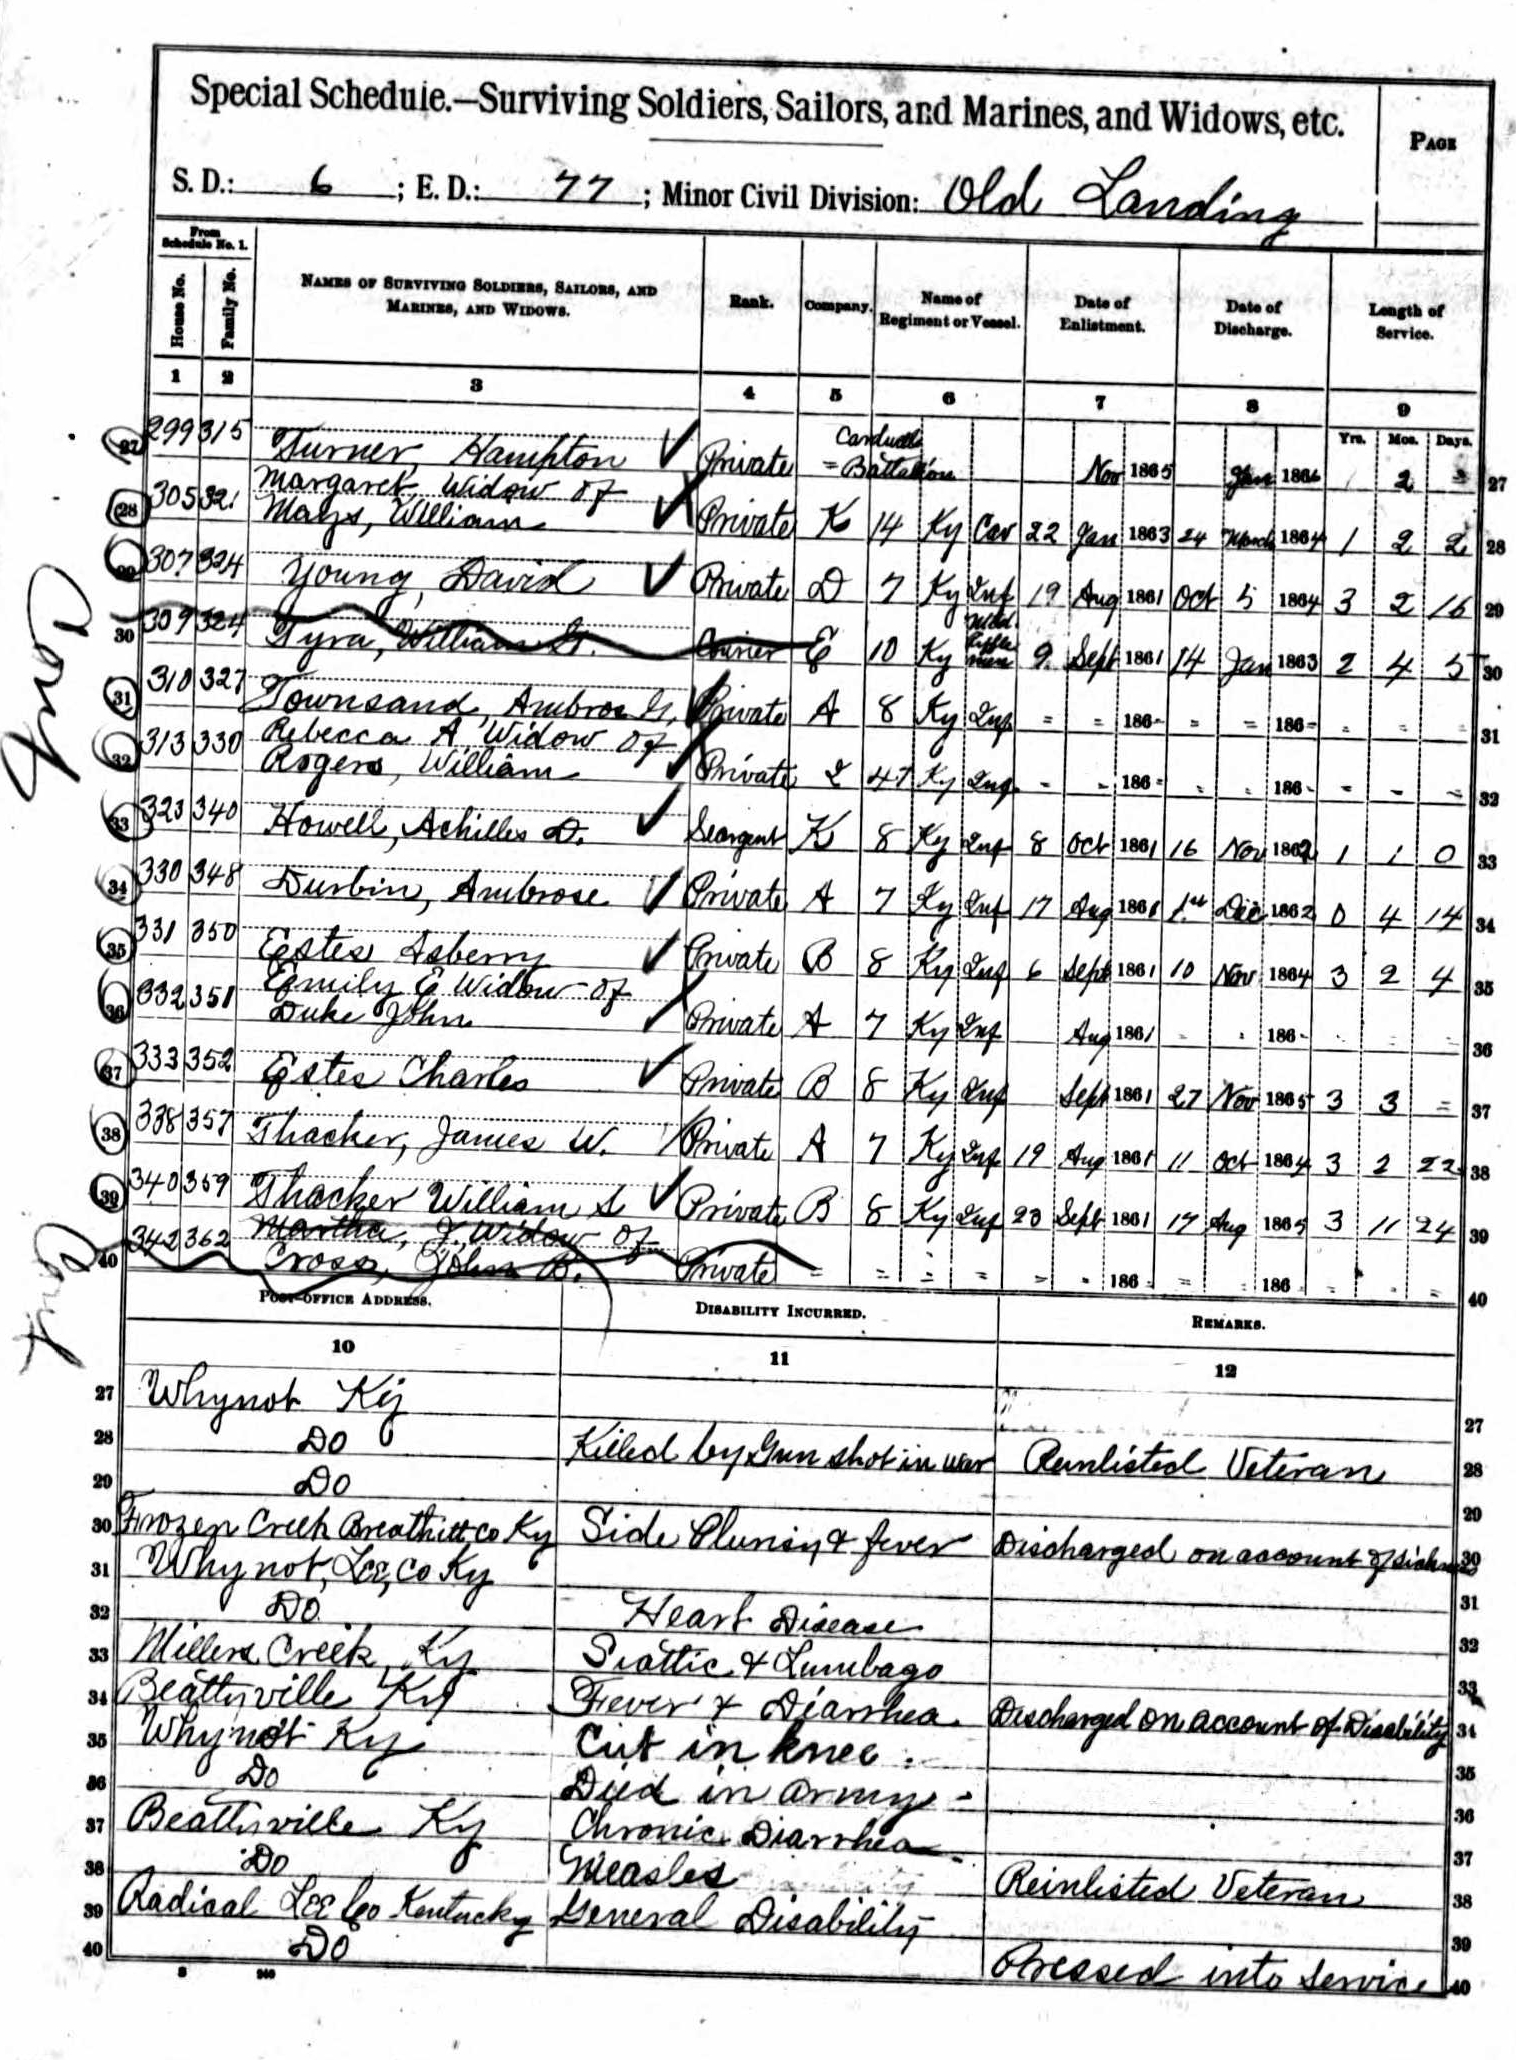 Special Schedule.—Surviving Soldiers, Sailors, and Marines, and Widows, etc.
PAGE
S. D.: 6 ; E. D.: 77 ; Minor Civil Division: Old Landing
From Schedule No. 1.
House No.
Family No.
NAMES OF SURVIVING SOLDIERS, SAILORS, AND MARINES, AND WIDOWS.
Rank.
Company.
Name of Regiment or Vessel.
Date of Enlistment.
Date of Discharge.
Length of Service.
1 2 3 4 5 6 7 8 9
Yrs. Mos. Days.
27 299 315 Turner, Hampton Private Battalion Nov 1865 Jan 1866 2 = 27
28 305 321 Margaret, Widow of
Mays, William Private K 14 Ky Cav 22 Jan 1863 24 March 1864 1 2 2 28
307 324 Young, David Private D 7 Ky Inf 19 Aug 1861 Oct 5 1864 3 2 16 29
30 309 324 Tyra, William E 10 Ky 9 Sept 1861 14 Jan 1863 2 4 5 30
31 310 327 Townsand, Ambros G. Private A 8 Ky Inf = = 186= = = 186= = = = 31
32 313 330 Rebecca A Widow of
Rogers, William Private I 47 Ky Inf - - 186= - - 186- - - - 32
33 323 340 Howell, Achilles D. Seargent K 8 Ky Inf 8 Oct 1861 16 Nov 1862 1 1 0 33
34 330 348 Durbin, Ambrose Private A 7 Ky Inf 17 Aug 1861 1st Dec 1862 0 4 14 34
35 331 350 Estes Asberry Private B 8 Ky Inf 6 Sept 1861 10 Nov 1864 3 2 4 35
36 332 351 Emily E Widow of
Duke John Private A 7 Ky Inf Aug 1861 - - 186- - - - 36
37 333 352 Estes Charles Private B 8 Ky Inf Sept 1861 27 Nov 1865 3 3 = 37
38 338 357 Thacker, James W. Private A 7 Ky Inf 19 Aug 1861 11 Oct 1864 3 2 22 38
39 340 359 Thacker William S Private B 8 Ky Inf 23 Sept 1861 17 Aug 1865 3 11 24 39
40 342 362 Martha, J. Widow of
Cross, John B. Private = = = = = - 186- = - 186- = - = 40
POST-OFFICE ADDRESS.
DISABILITY INCURRED.
REMARKS.
10 11 12
27 Whynot Ky 27
28 Do Killed by Gun shot in war Reinlisted Veteran 28
29 Do 29
30 Frozen Creek Breathitt Co Ky Side Plurisy & fever Discharged on account of 30
31 Whynot, Lee, Co Ky 31
32 Do Heart Disease 32
33 Millers Creek, Ky Siattic & Lumbago 33
34 Beattyville Ky Fever & Diarrhea Discharged on account of Disability 34
35 Whynot Ky Cut in knee. 35
36 Do Died in army - 36
37 Beattyville Ky Chronic Diarrhea 37
38 Do Measles Reinlisted Veteran 38
39 Radical Lee Co Kentucky General Disability 39
40 Do Pressed into Service 40